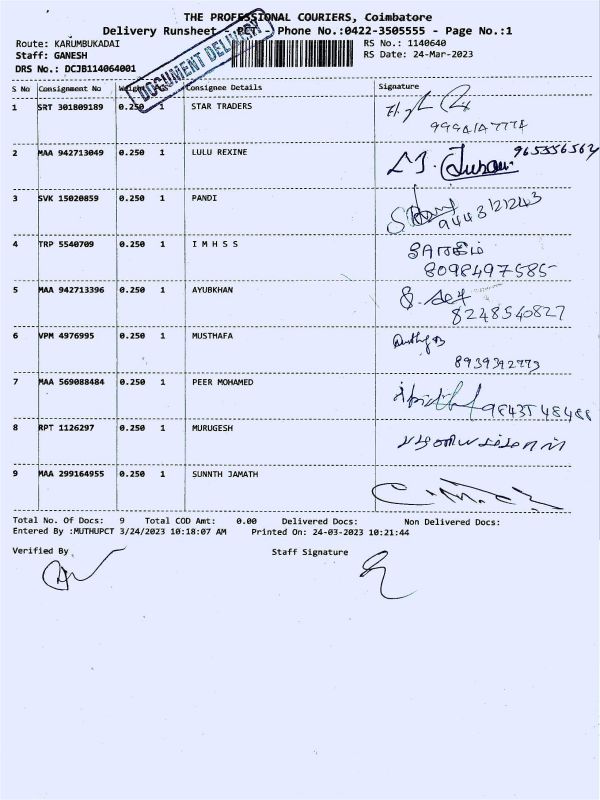 THE PROFESSIONAL COURIERS, Coimbatore
Delivery Runsheet - PCT - Phone No.:0422-3505555 - Page No.:1
DOCUMENT DELIVERY
Route: KARUMBUKADAI RS No.: 1140640
Staff: GANESH RS Date: 24-Mar-2023
DRS No.: DCJB114064001
S No Consignment No Weight Pcs Consignee Details Signature
1 SRT 301809189 0.250 1 STAR TRADERS
2 MAA 942713049 0.250 1 LULU REXINE
3 SVK 15020859 0.250 1 PANDI
9443121243
4 TRP 5540709 0.250 1 I M H S S
8098497585
5 MAA 942713396 0.250 1 AYUBKHAN
8248540827
6 VPM 4976995 0.250 1 MUSTHAFA
8939392773
7 MAA 569088484 0.250 1 PEER MOHAMED
8 RPT 1126297 0.250 1 MURUGESH
9 MAA 299164955 0.250 1 SUNNTH JAMATH
Total No. Of Docs: 9 Total COD Amt: 0.00 Delivered Docs: Non Delivered Docs:
Entered By :MUTHUPCT 3/24/2023 10:18:07 AM Printed On: 24-03-2023 10:21:44
Verified By Staff Signature